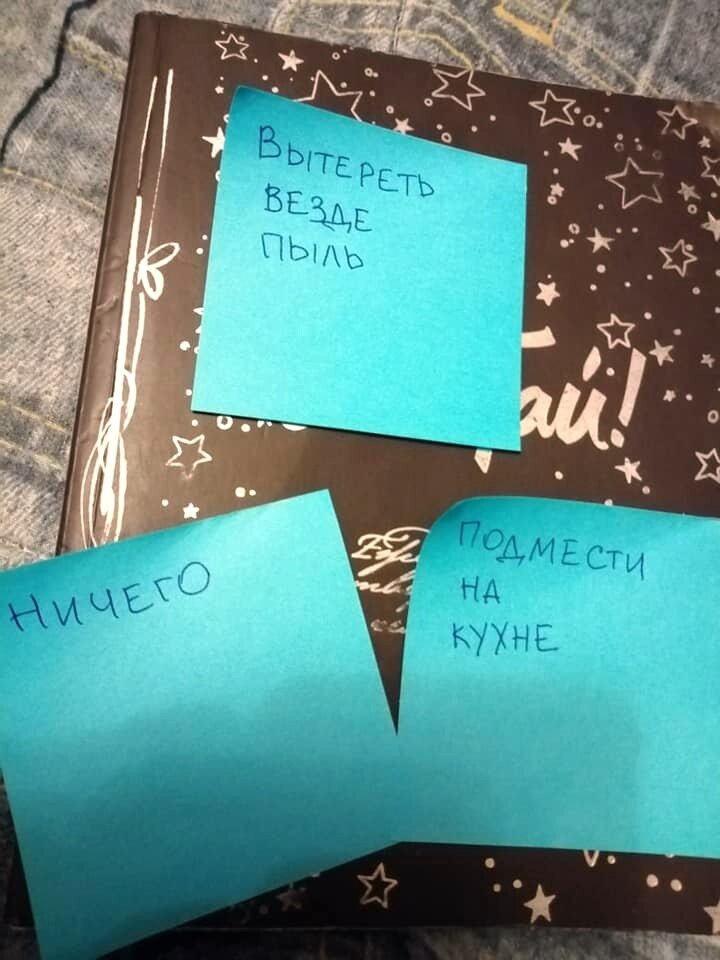 Вытереть
везде
пыль
ай!
Ничего
Подмести
на
кухне